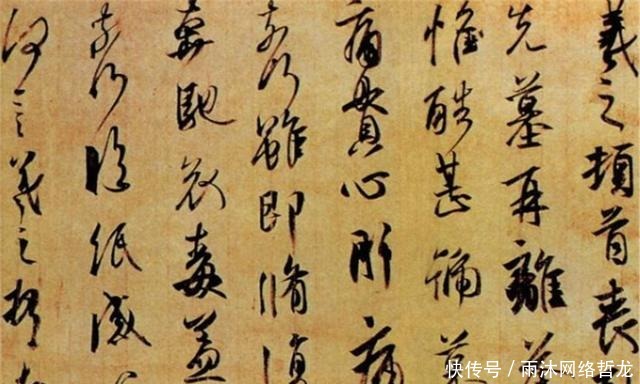 羲之頓首喪
先墓再離
惟酷甚號
痛貫心肝痛
奈何雖即脩復
奔馳哀毒益
奈何臨紙感
何言羲之頓
快传号 / 雨沐网络哲龙